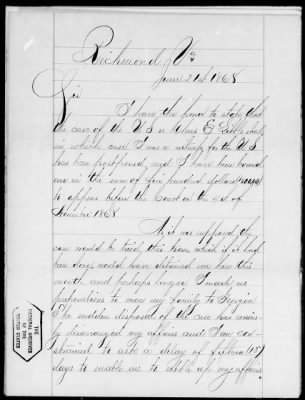 Richmond Va
June 21st 1868
Sir
I have the honor to state that
the case of the US vs Chas E.
in which case I was a witness for the U.S.
has been postponed and I have been bound
over in the sum of five hundred dollars
to appear before the Court on the 2d of
November 1868
As it was supposed the
case would be tried this term, which if it had
been done, would have detained me here this
month and perhaps longer I made no
preparations to move my family to
The sudden disposal of the case has
disarranged my affairs and I am con-
strained to ask a delay of fifteen (15)
days to enable me to settle up my affairs
THE
NATIONAL ARCHIVES
OF THE
UNITED STATES